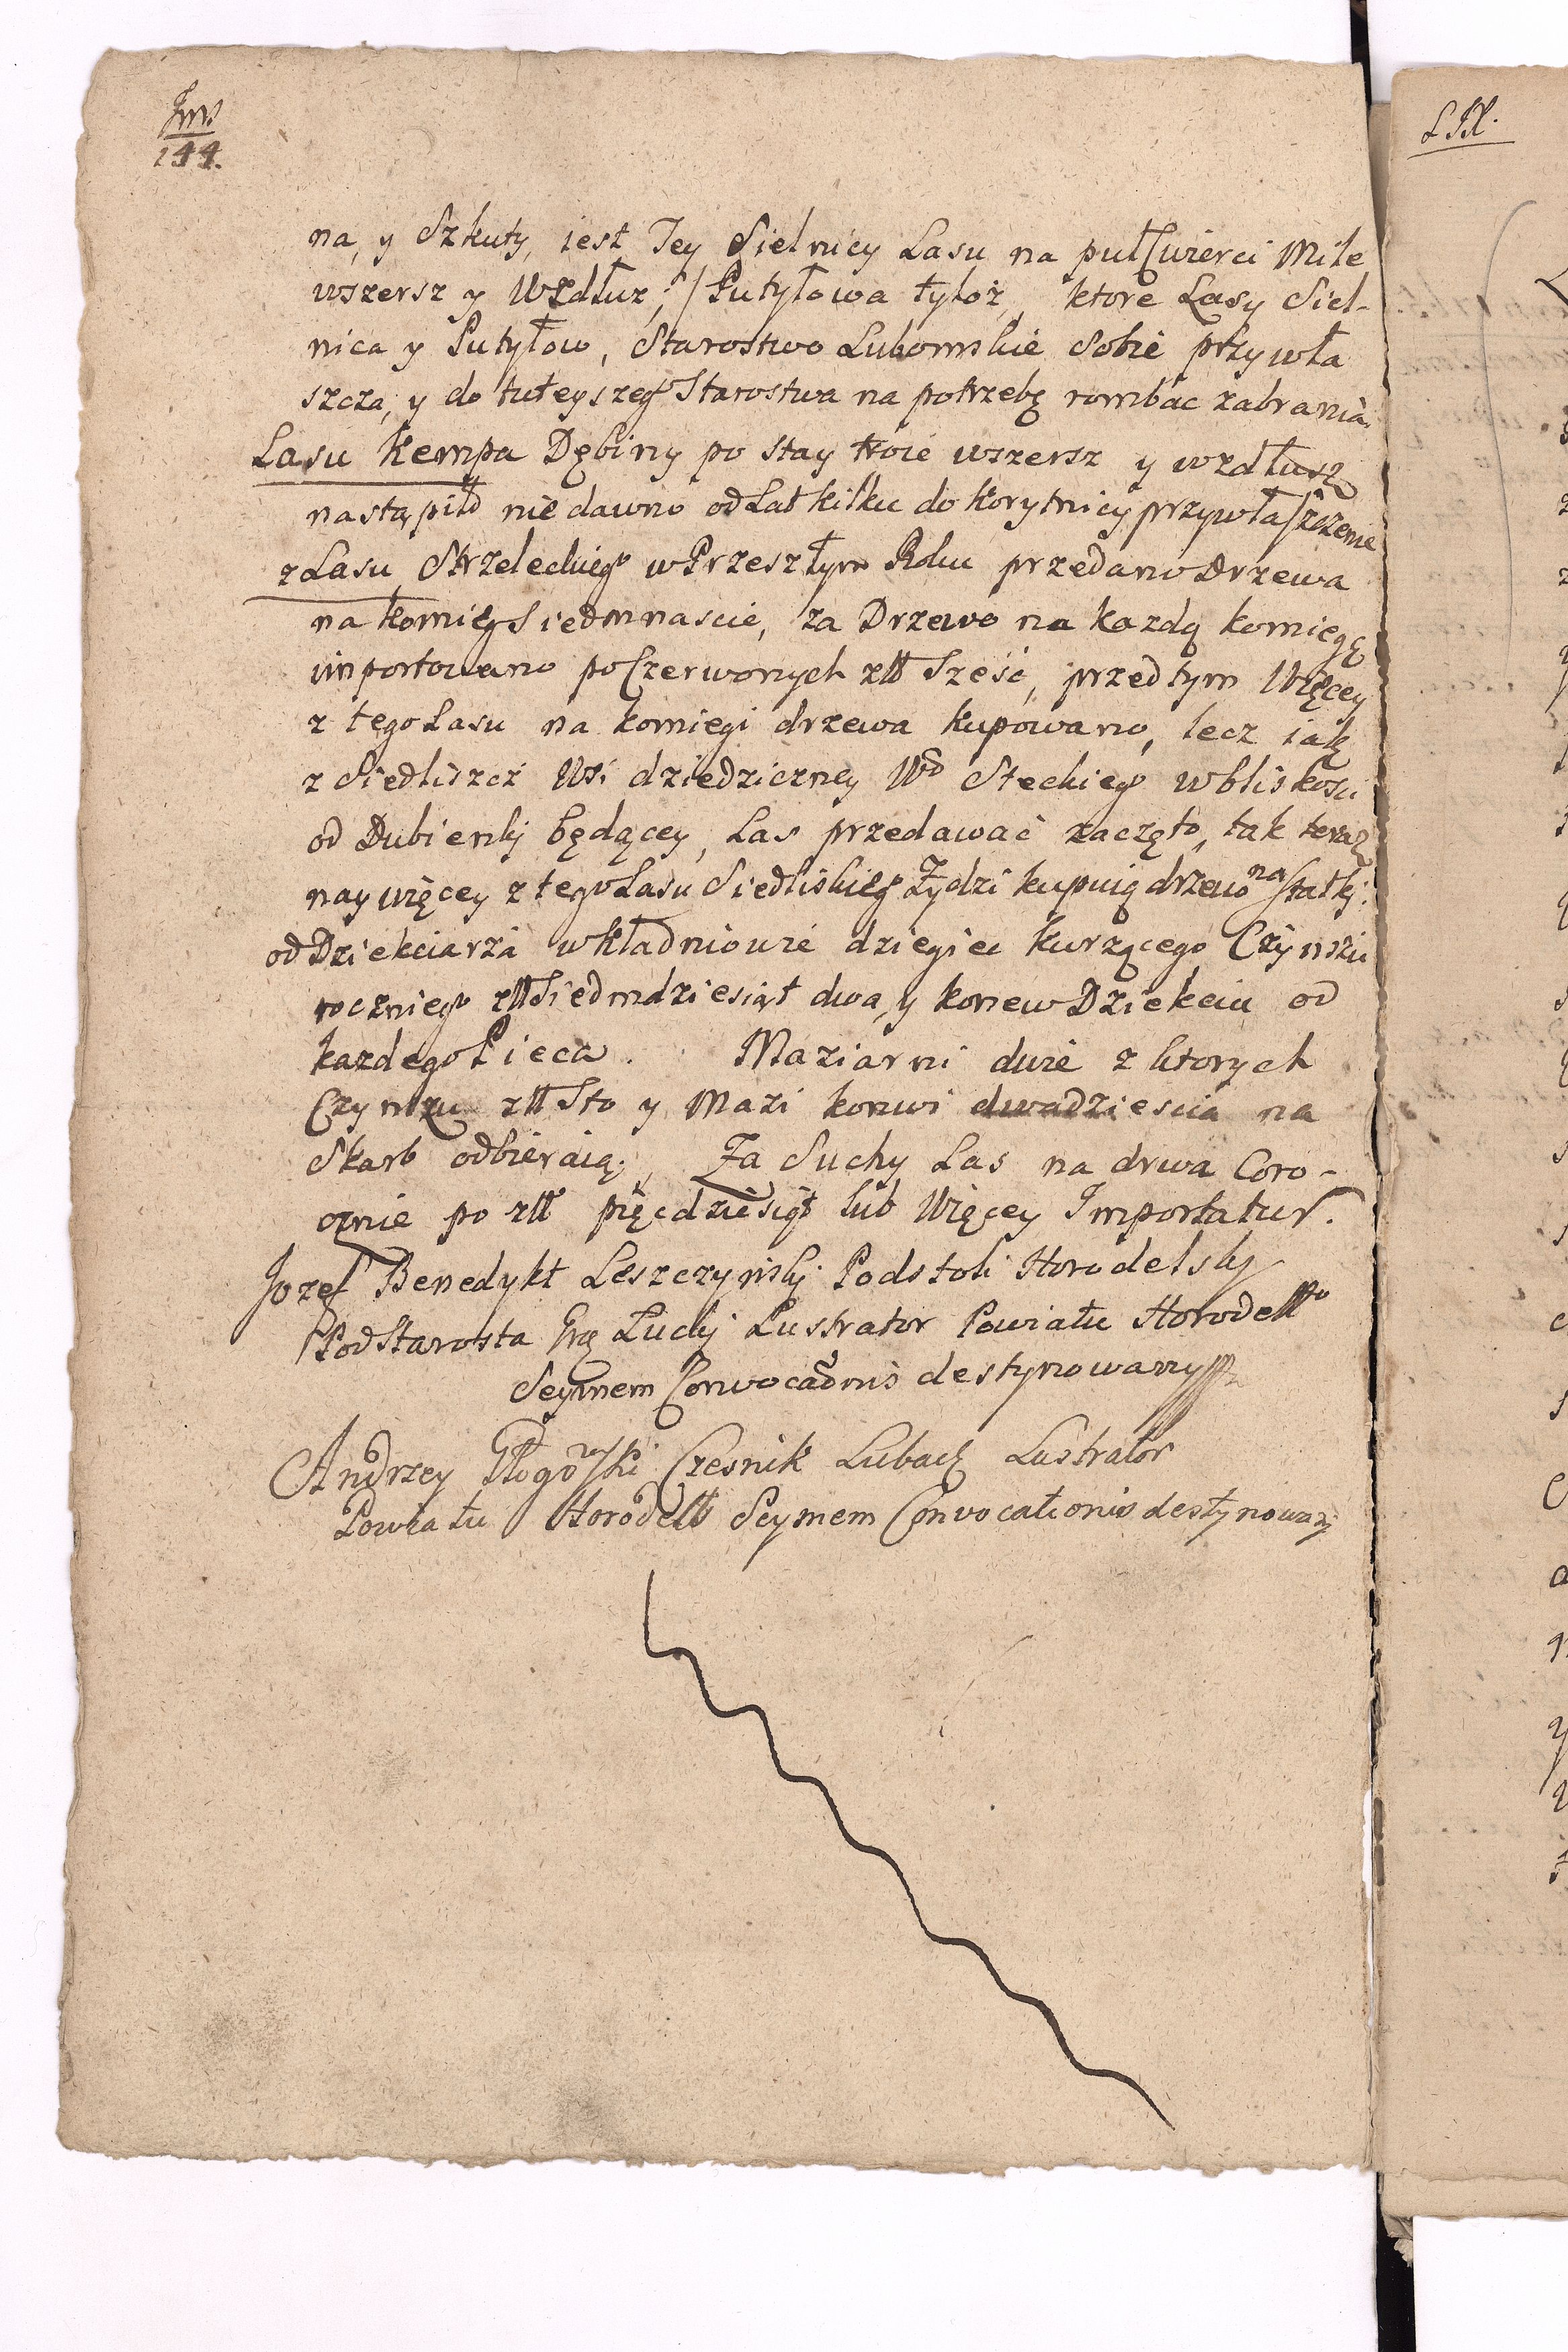 144.
na, y Szkuty, iest Jey Sielnicy Lasu na pułCwierci Mile
wszersz y Wzdłuz, Putyłowa tyloż, ktore Lasy Siel-
nica y Putyłow, Starostwo Lubomskie Sobie przywła
szcza, y do tuteyszeg° Starostwa na potrzebę rombac zabrania.
Lasu Kempa Dębiny po stay troie wszersz y wzdłusz
nastąpiło nie dawno od Lat kilku do Korytnicy przywłaszczenie
z Lasu Strzeleckieg° w Przeszłym Roku przedano Drzewa
na Komieg Siedmnascie, za Drzewo na Kazdą komiegę
importowano po Czerwonych złł Sześć, przedtym Więcey
z tego Lasu na komiegi drzewa kupowano, lecz iak
z Siedliszcz Wsi dziedziczney Wo Steckieg° w bliskosci
od Dubienki będącey, Las przedawać zaczęto, tak teraz
naywięcey z tego Lasu Siedliskieg° Żydzi kupuią drzewo na statki.
od Dziekciarza w Kładniowie dziegiec Kurzącego Czynszu
roczniego złł Siedmdziesiąt dwa, y konew Dziekciu od
kazdego Pieca. Maziarni dwie z ktorych
Czynszu złł Sto y Mazi konwi dwadziescia na
Skarb odbieraią, Za Suchy Las na drwa Coro-
cznie po złł pięcdziesiąt lub Więcey Importatur.
Jozef Benedykt Leszczynski Podstoli Horodelsky
PodStarosta Lucki Lustrator Powiatu Horodell°
Seymem Convocaonis destynowany
Andrzey Głogowski Czesnik Lubacz Lustrator
Powiatu Horodell° Seymem Convocationis destynowany
LIX.